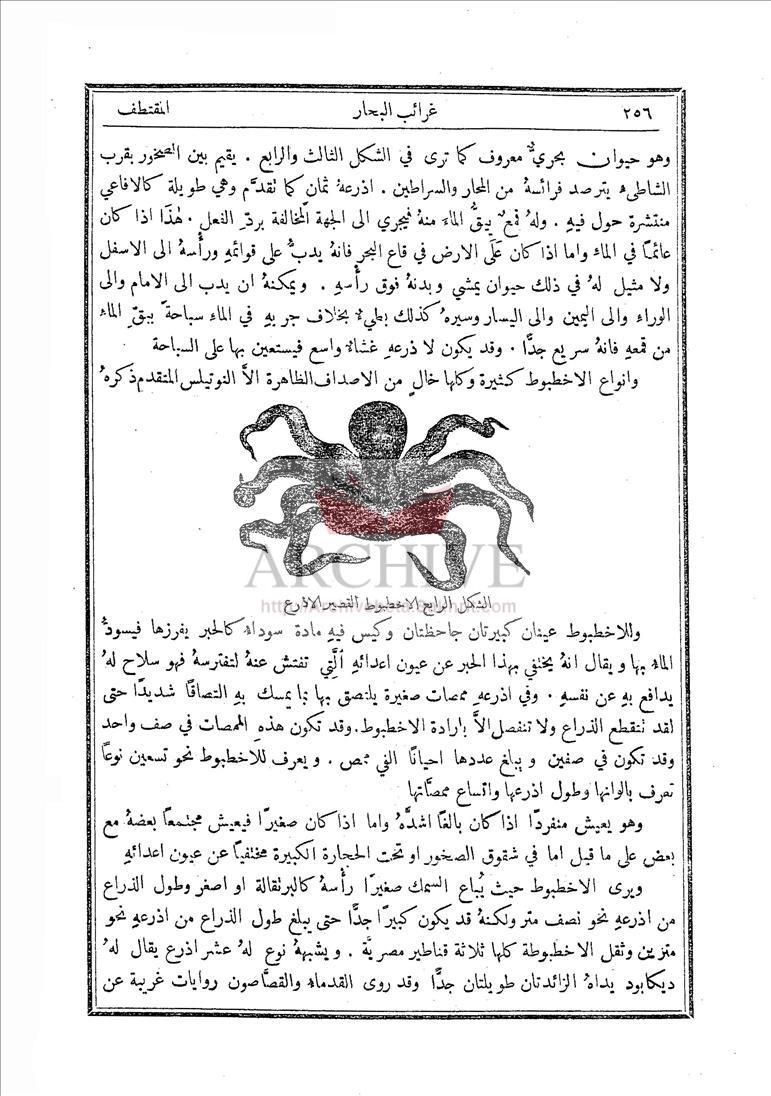 ٢٥٦ غرائب البحار المقتطف
وهو حيوان بحريٌّ معروف كما ترى في الشكل الثالث والرابع . يقيم بين الصخور بقرب
الشاطىء يترصد فرائسهُ من المحار والسراطين . اذرعهُ ثمان كما تقدَّم وهي طويلة كالافاعي
منتشرة حول فيهِ . ولهُ قمعٌ يبقُّ الماءَ منهُ فيجري الى الجهة المخالفة بردِّ الفعل . هٰذا اذا كان
عائمًا في الماء واما اذا كان عَلَى الارض في قاع البحر فانهُ يدبُّ على قوائمهِ ورأسهُ الى الاسفل
ولا مثيل لهُ في ذلك حيوان يمشي وبدنهُ فوق رأسهِ . ويمكنهُ ان يدب الى الامام والى
الوراء والى اليمين والى اليسار وسيرهُ كذلك بطيءٌ بخلاف جريهِ في الماء سباحةً ببقِّ الماء
من قمعهِ فانهُ سريع جدًّا . وقد يكون لاذرعهِ غشاءٌ واسع فيستعين بها على السباحة
وانواع الاخطبوط كثيرة وكلها خالٍ من الاصداف الظاهرة الاَّ النوتيلس المتقدم ذكرهُ
ARCHIVE
الشكل الرابع الاخطبوط القصير الاذرع
وللاخطبوط عينان كبيرتان جاحظتان وكيس فيهِ مادة سوداء كالحبر يفرزها فيسودُّ
الماءُ بها ويقال انهُ يختفي بهذا الحبر عن عيون اعدائهِ الَّتِي تفتش عنهُ لتفترسهُ فهو سلاح لهُ
يدافع بهِ عن نفسهِ . وفي اذرعهِ ممصات صغيرة يلتصق بها بما يمسك بهِ التصاقًا شديدًا حتى
لقد تنقطع الذراع ولا تنفصل الاَّ بارادة الاخطبوط . وقد تكون هذهِ الممصات في صف واحد
وقد تكون في صفين ويبلغ عددها احيانًا الفي ممص . ويعرف للاخطبوط نحو تسعين نوعًا
تعرف بالوانها وطول اذرعها واتساع ممصَّاتها
وهو يعيش منفردًا اذا كان بالغًا اشدَّهُ واما اذا كان صغيرًا فيعيش مجتمعًا بعضهُ مع
بعض على ما قيل اما في شقوق الصخور او تحت الحجارة الكبيرة مختفيًا عن عيون اعدائهِ
ويرى الاخطبوط حيث يُباع السمك صغيرًا رأسهُ كالبرتقالة او اصغر وطول الذراع
من اذرعهِ نحو نصف متر ولكنهُ قد يكون كبيرًا جدًّا حتى يبلغ طول الذراع من اذرعهِ نحو
مترين وثقل الاخطبوطة كلها ثلاثة قناطير مصريَّة . ويشبههُ نوع لهُ عشر اذرع يقال لهُ
ديكابود يداهُ الزائدتان طويلتان جدًّا وقد روى القدماء والقصَّاصون روايات غريبة عن